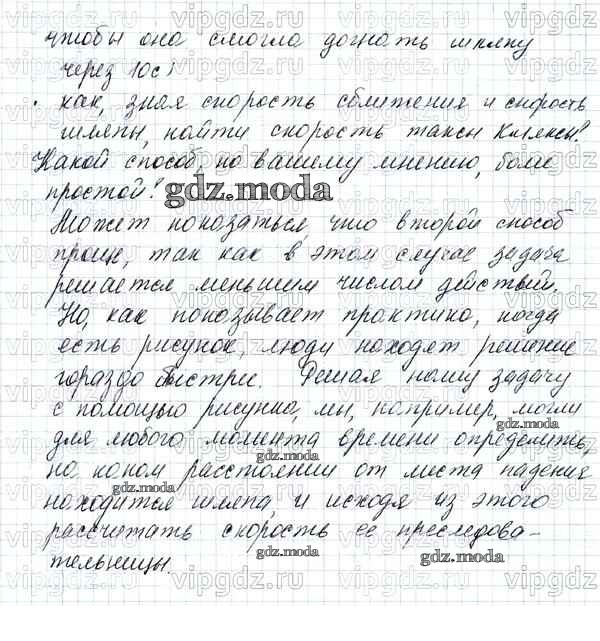 чтобы она смогла догнать шляпу
через 10с?
• как, зная скорость сближения и скорость
шляпы, найти скорость таксы Кляксы?
Какой способ, по вашему мнению, более
простой?
gdz.moda
Может показаться, что второй способ
проще, так как в этом случае задача
решается меньшим числом действий.
Но, как показывает практика, когда
есть рисунок, люди находят решение
гораздо быстрее. Решая нашу задачу
с помощью рисунка, мы, например, могли
gdz.moda
для любого момента времени определить,
gdz.moda
на каком расстоянии от места падения
gdz.moda
находится шляпа, и исходя из этого
рассчитать скорость её преследова-
gdz.moda
gdz.moda
gdz.moda
тельницы.
vipgdz.ru